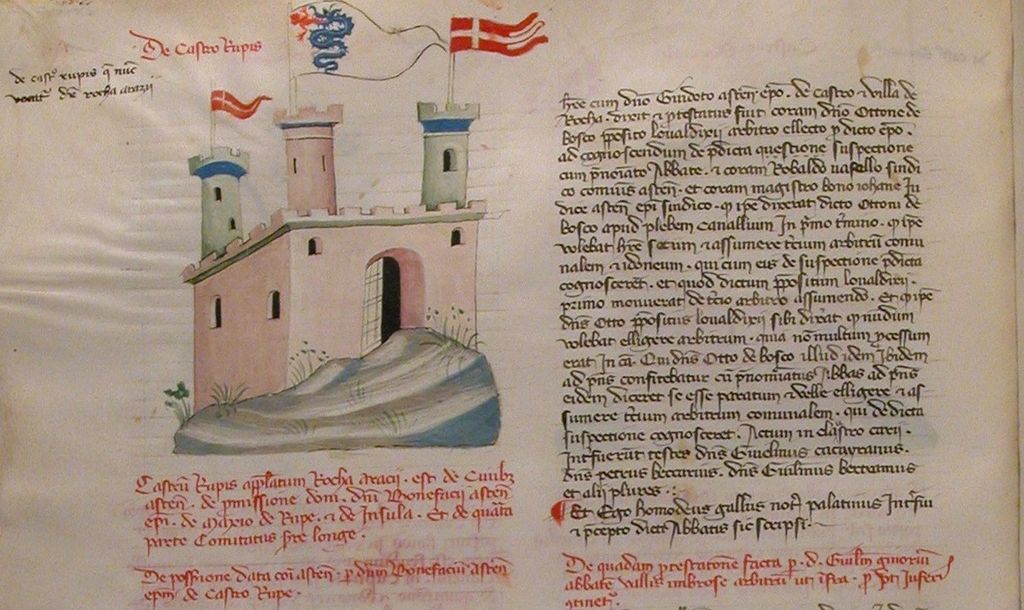 De Castro Rupis
de cast̄ rupis q̄ nūc
vocat᷑ dc̄ rocha arazii
Castrū Rupis app̄llatum Rocha aracij . est de
astēn . de p̄missione domi . dn̄i Bonefacij astēn
ep̄i . de de Rupe . ⁊ de Insula . Et de quarta
parte Comitatus longe .
De possessione data coī astēn . p̄ dn̄um Bonefaciū Astēn
ep̄m de Castro Rupe .
h̄re cum dn̄o Guidoto astēn ep̄o . de castro ⁊ villa de
Rocha . dixit ⁊ p̄testatus fuit coram dn̄o Ottone de
bosco p̄posito lovaldixij arbitro ellecto p̄ dicto ep̄o .
ad cognoscendum de p̄dicta questione suspectione
cum p̄noīato Abbate . ⁊ coram Robaldo vasallo sindi
co comūis astēn . et coram magistro bono iohāne Iu
dice astēn ep̄i sindico . q̄ ip̄e dixerat dicto Ottoni de
bosco apud plebem Canallium In p̄mo t̄mino . q̄ ip̄e
volebat h̄re socium ⁊ assumere tercium arbitrū comu
nalem ⁊ idoneum . qui cum eis de suspectione p̄dicta
cognosceret . et quod dictum p̄positum lovaldixij .
primo monuerat de t̄cio arbitro assumendo . Et q̄ ip̄e
dn̄s Otto p̄positus lovaldixij sibi dixerat q̄ nundum
volebat elligere arbitrum . quia nō multum p̄cessum
erat In cā . Qui dn̄s Otto de bosco illud idem Ibidem
ad p̄ns confitebatur cū p̄nominatus Abbas ad p̄ns
eidem diceret se esse paratum ⁊ velle elligere ⁊ as
sumere t̄cium arbitrum comunalem . qui de dicta
suspectione cognosceret . Actum in claustro carij .
Intfuerūt testes dn̄s Guielmus cacayranus .
dn̄s petrus beccarius . dn̄s Guilīnus becramus
et alij plures .
Et Ego homodeus gallus not̄ palatinus Int̄fui
⁊ p̄cepto dicti Abbatis sic scripsi .
De quadam p̄testatione facta p̄ . d . Guilīn
abbatē vallis umbrose arbitrū ut īfra .